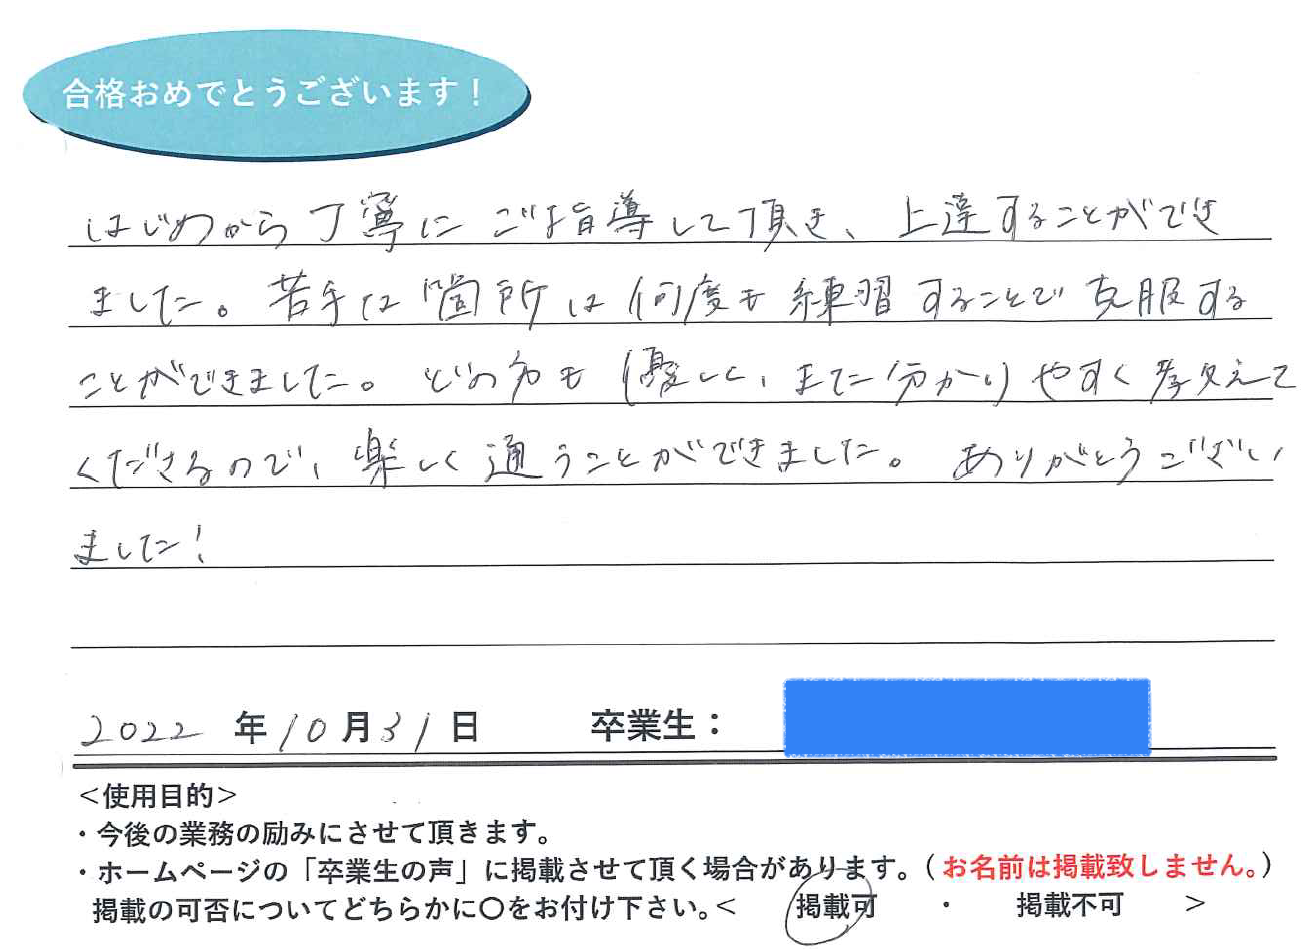 合格おめでとうございます！
はじめから丁寧にご指導して頂き、上達することができ
ました。苦手な箇所は何度も練習することで克服する
ことができました。どの方も優しく、また分かりやすく教えて
くださるので、楽しく通うことができました。ありがとうござい
ました！
2022年10月31日 卒業生：
＜使用目的＞
・今後の業務の励みにさせて頂きます。
・ホームページの「卒業生の声」に掲載させて頂く場合があります。（お名前は掲載致しません。）
掲載の可否についてどちらかに〇をお付け下さい。＜ 掲載可 ・ 掲載不可 ＞